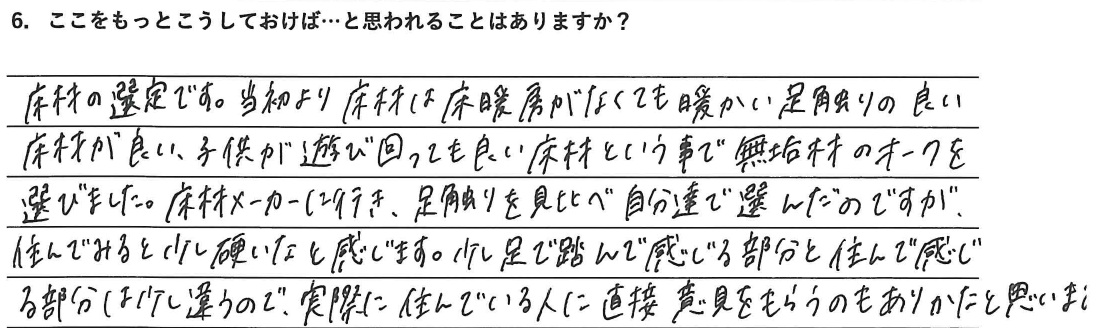 6. ここをもっとこうしておけば…と思われることはありますか?
床材の選定です。当初より床材は床暖房がなくても暖かい足触りの良い
床材が良い、子供が遊び回っても良い床材という事で無垢材のオークを
選びました。床材メーカーに行き、足触りを見比べ自分達で選んだのですが、
住んでみると少し硬いなと感じます。少し足で踏んで感じる部分と住んで感じ
る部分は少し違うので、実際に住んでいる人に直接意見をもらうのもありかなと思いま